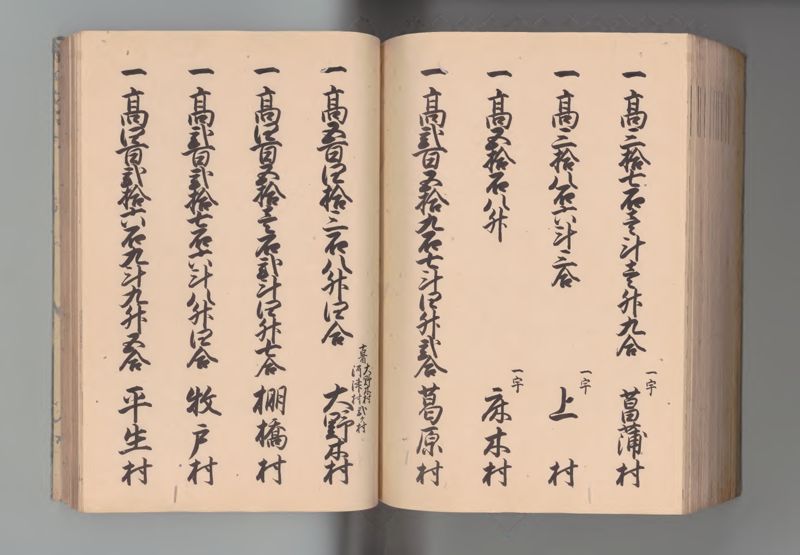 一 高三拾七石壱斗壱升九合 一字 菖蒲村
一 高三拾八石六斗三合 一字 上村
一 高五拾石八升 一字 麻木村
一 高弐百五拾九石七斗四升弐合 葛原村
一 高五百四拾三石八升四合 大野木村
大野木村
河津村 弐ヶ村
一 高四百五拾壱石弐斗四升七合 棚橋村
一 高弐百弐拾七石六斗八升四合 牧戸村
一 高四百弐拾六石九斗九升五合 平生村